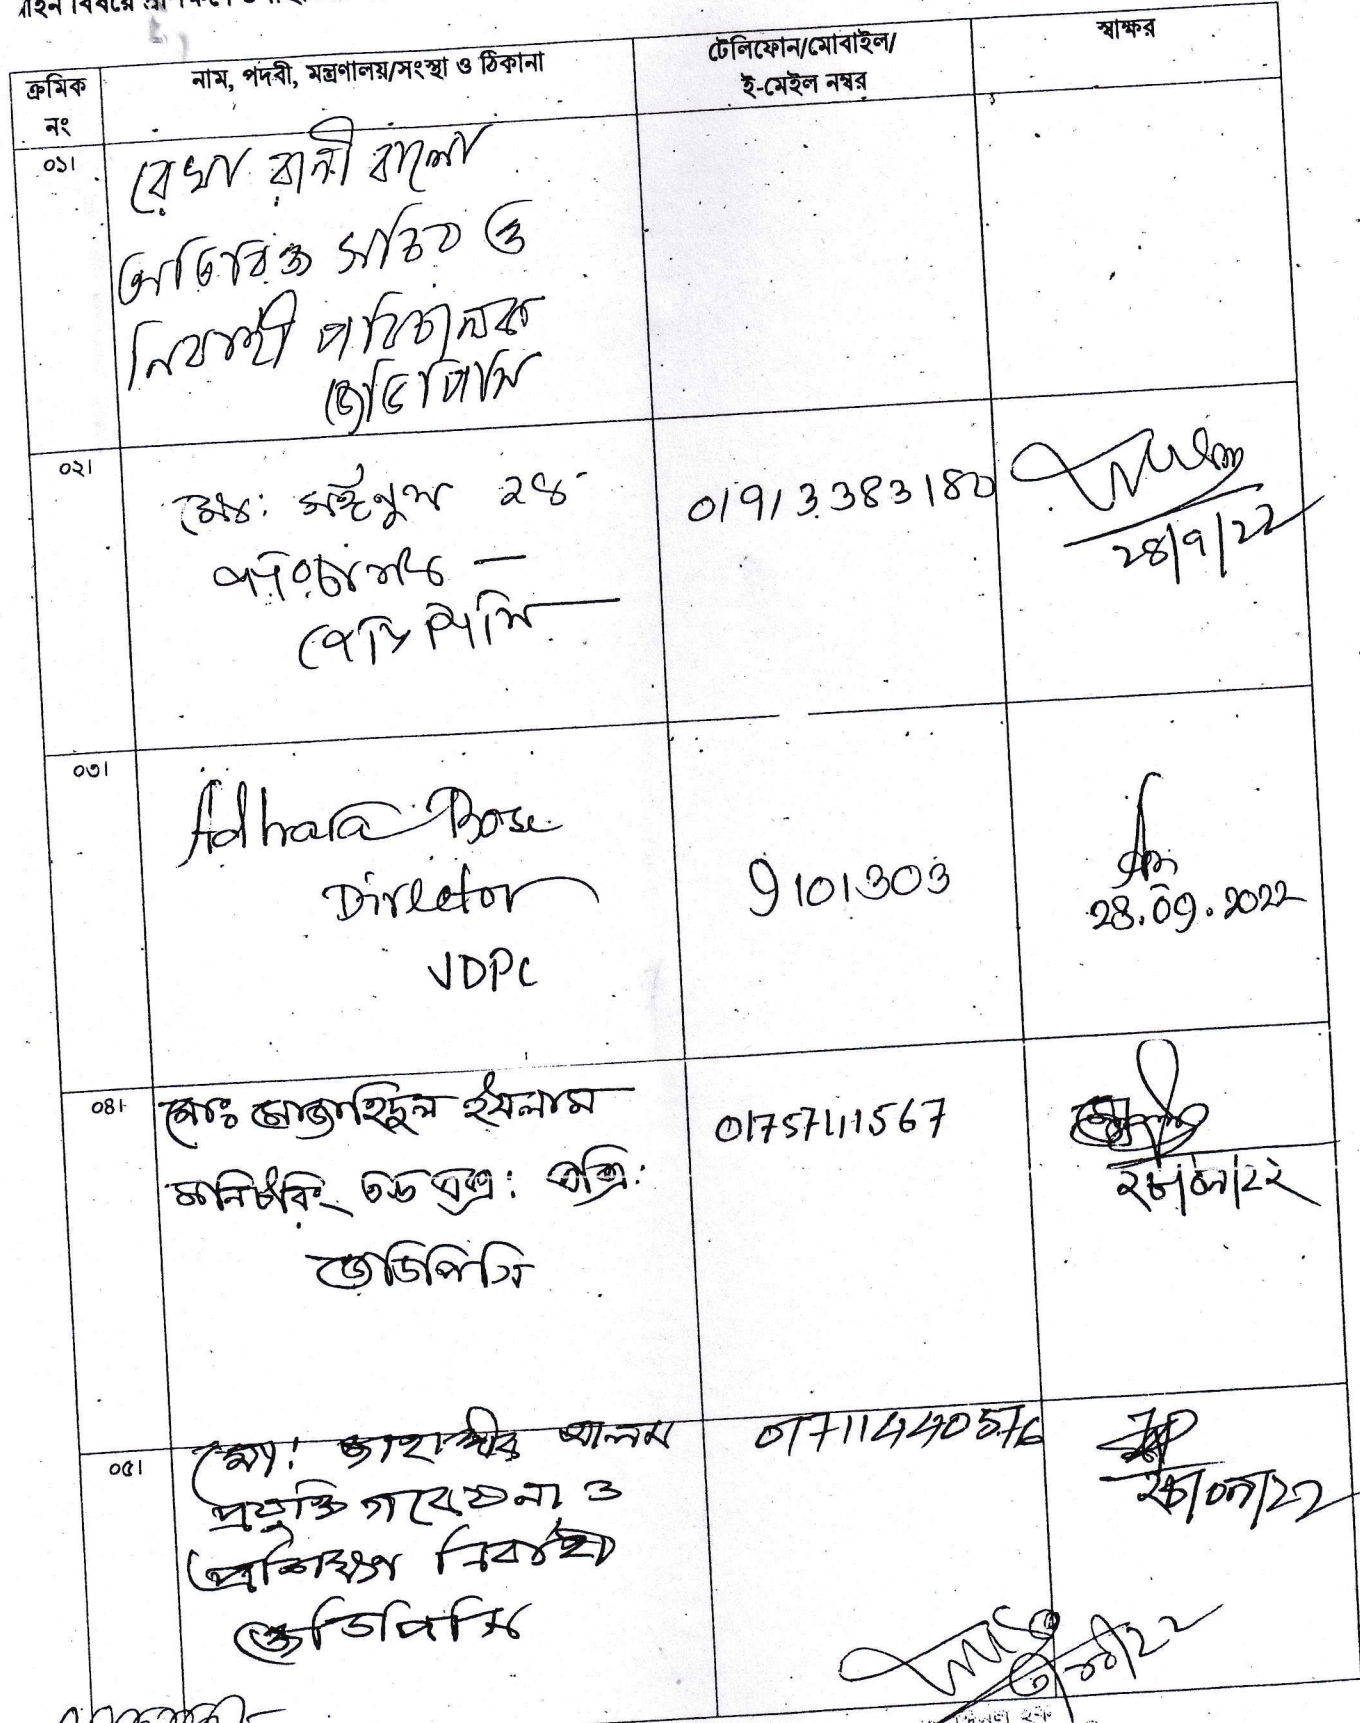 ক্রমিক নং
নাম, পদবী, মন্ত্রণালয়/সংস্থা ও ঠিকানা
টেলিফোন/মোবাইল/
ই-মেইল নম্বর
স্বাক্ষর
০১।
রেখা রানী বালো
অতিরিক্ত সচিব ও
নির্বাহী পরিচালক
জেডিপিসি
০২।
মো: মঈনুল হক
পরিচালক
জেডিপিসি
01913383180
28/9/22
০৩।
Adhara Bose
Director
JDPC
9101303
28.09.2022
০৪।
মোঃ মোজাহিদুল ইসলাম
মনিটরিং
জেডিপিসি
01757111567
২৮/০৯/২২
০৫।
মো: জাহাঙ্গীর আলম
প্রযুক্তি গবেষনা ও
প্রশিক্ষণ নির্বাহী
জেডিপিসি
01711440576
২৮/০৯/২২